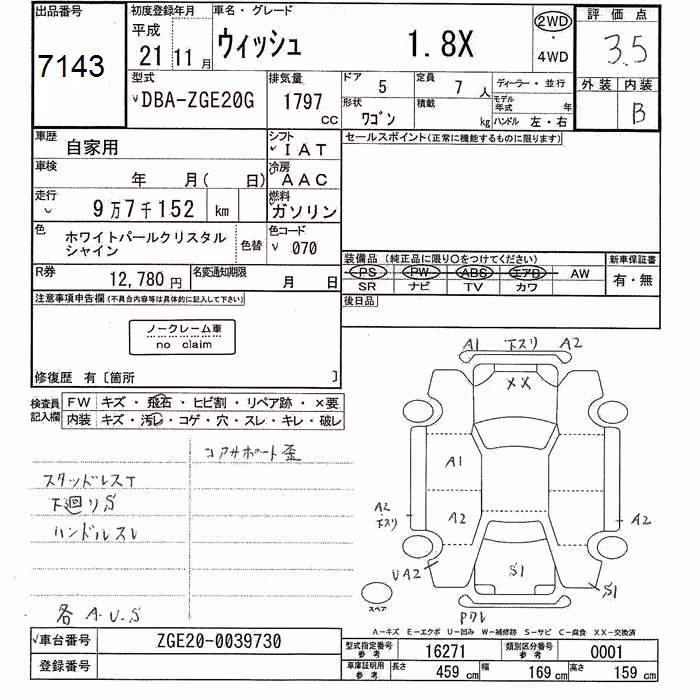 出品番号
7143
初度登録年月
平成
21年11月
車名・グレード
ウィッシュ 1.8X
2WD
・
4WD
評価点
3.5
外装 内装
B
型式
✓DBA-ZGE20G
排気量
1797
cc
ドア
5
定員
7人
ディーラー・並行
形状
ワゴン
積載
kg
モデル年式 年
ハンドル 左・右
車歴
自家用
シフト
✓IAT
セールスポイント(正常に機能するものに限ります)
車検
年 月( 日)
冷房
AAC
走行
✓ 9万7千152 km
燃料
ガソリン
色
ホワイトパールクリスタル
シャイン
色替
色コード
✓ 070
装備品 (純正品に限り○をつけてください)
新車保証書
PS PW ABS エアB AW
有・無
SR ナビ TV カワ
R券
12,780円
名変通知期限
月 日
後日品
注意事項申告欄(不具合内容等は具体的に記入して下さい)
ノークレーム車
no claim
修復歴 有〔箇所 〕
検査員
記入欄
FW キズ・飛石・ヒビ割・リペア跡・×要
内装 キズ・汚レ・コゲ・穴・スレ・キレ・破レ
コアサポート歪
スタッドレスT
下廻りS
ハンドルスレ
各A.U.S
A1 下スリ A2
XX
A1
A2
A2
下スリ
A2
UA2
S1
S1
スペア
Pワレ
A-キズ E-エクボ U-凹み W-補修跡 S-サビ C-腐食 XX-交換済
✓車台番号
ZGE20-0039730
登録番号
型式指定番号
参考
16271
類別区分番号
参考
0001
車庫証明用
参考
長さ 459 cm 幅 169 cm 高さ 159 cm